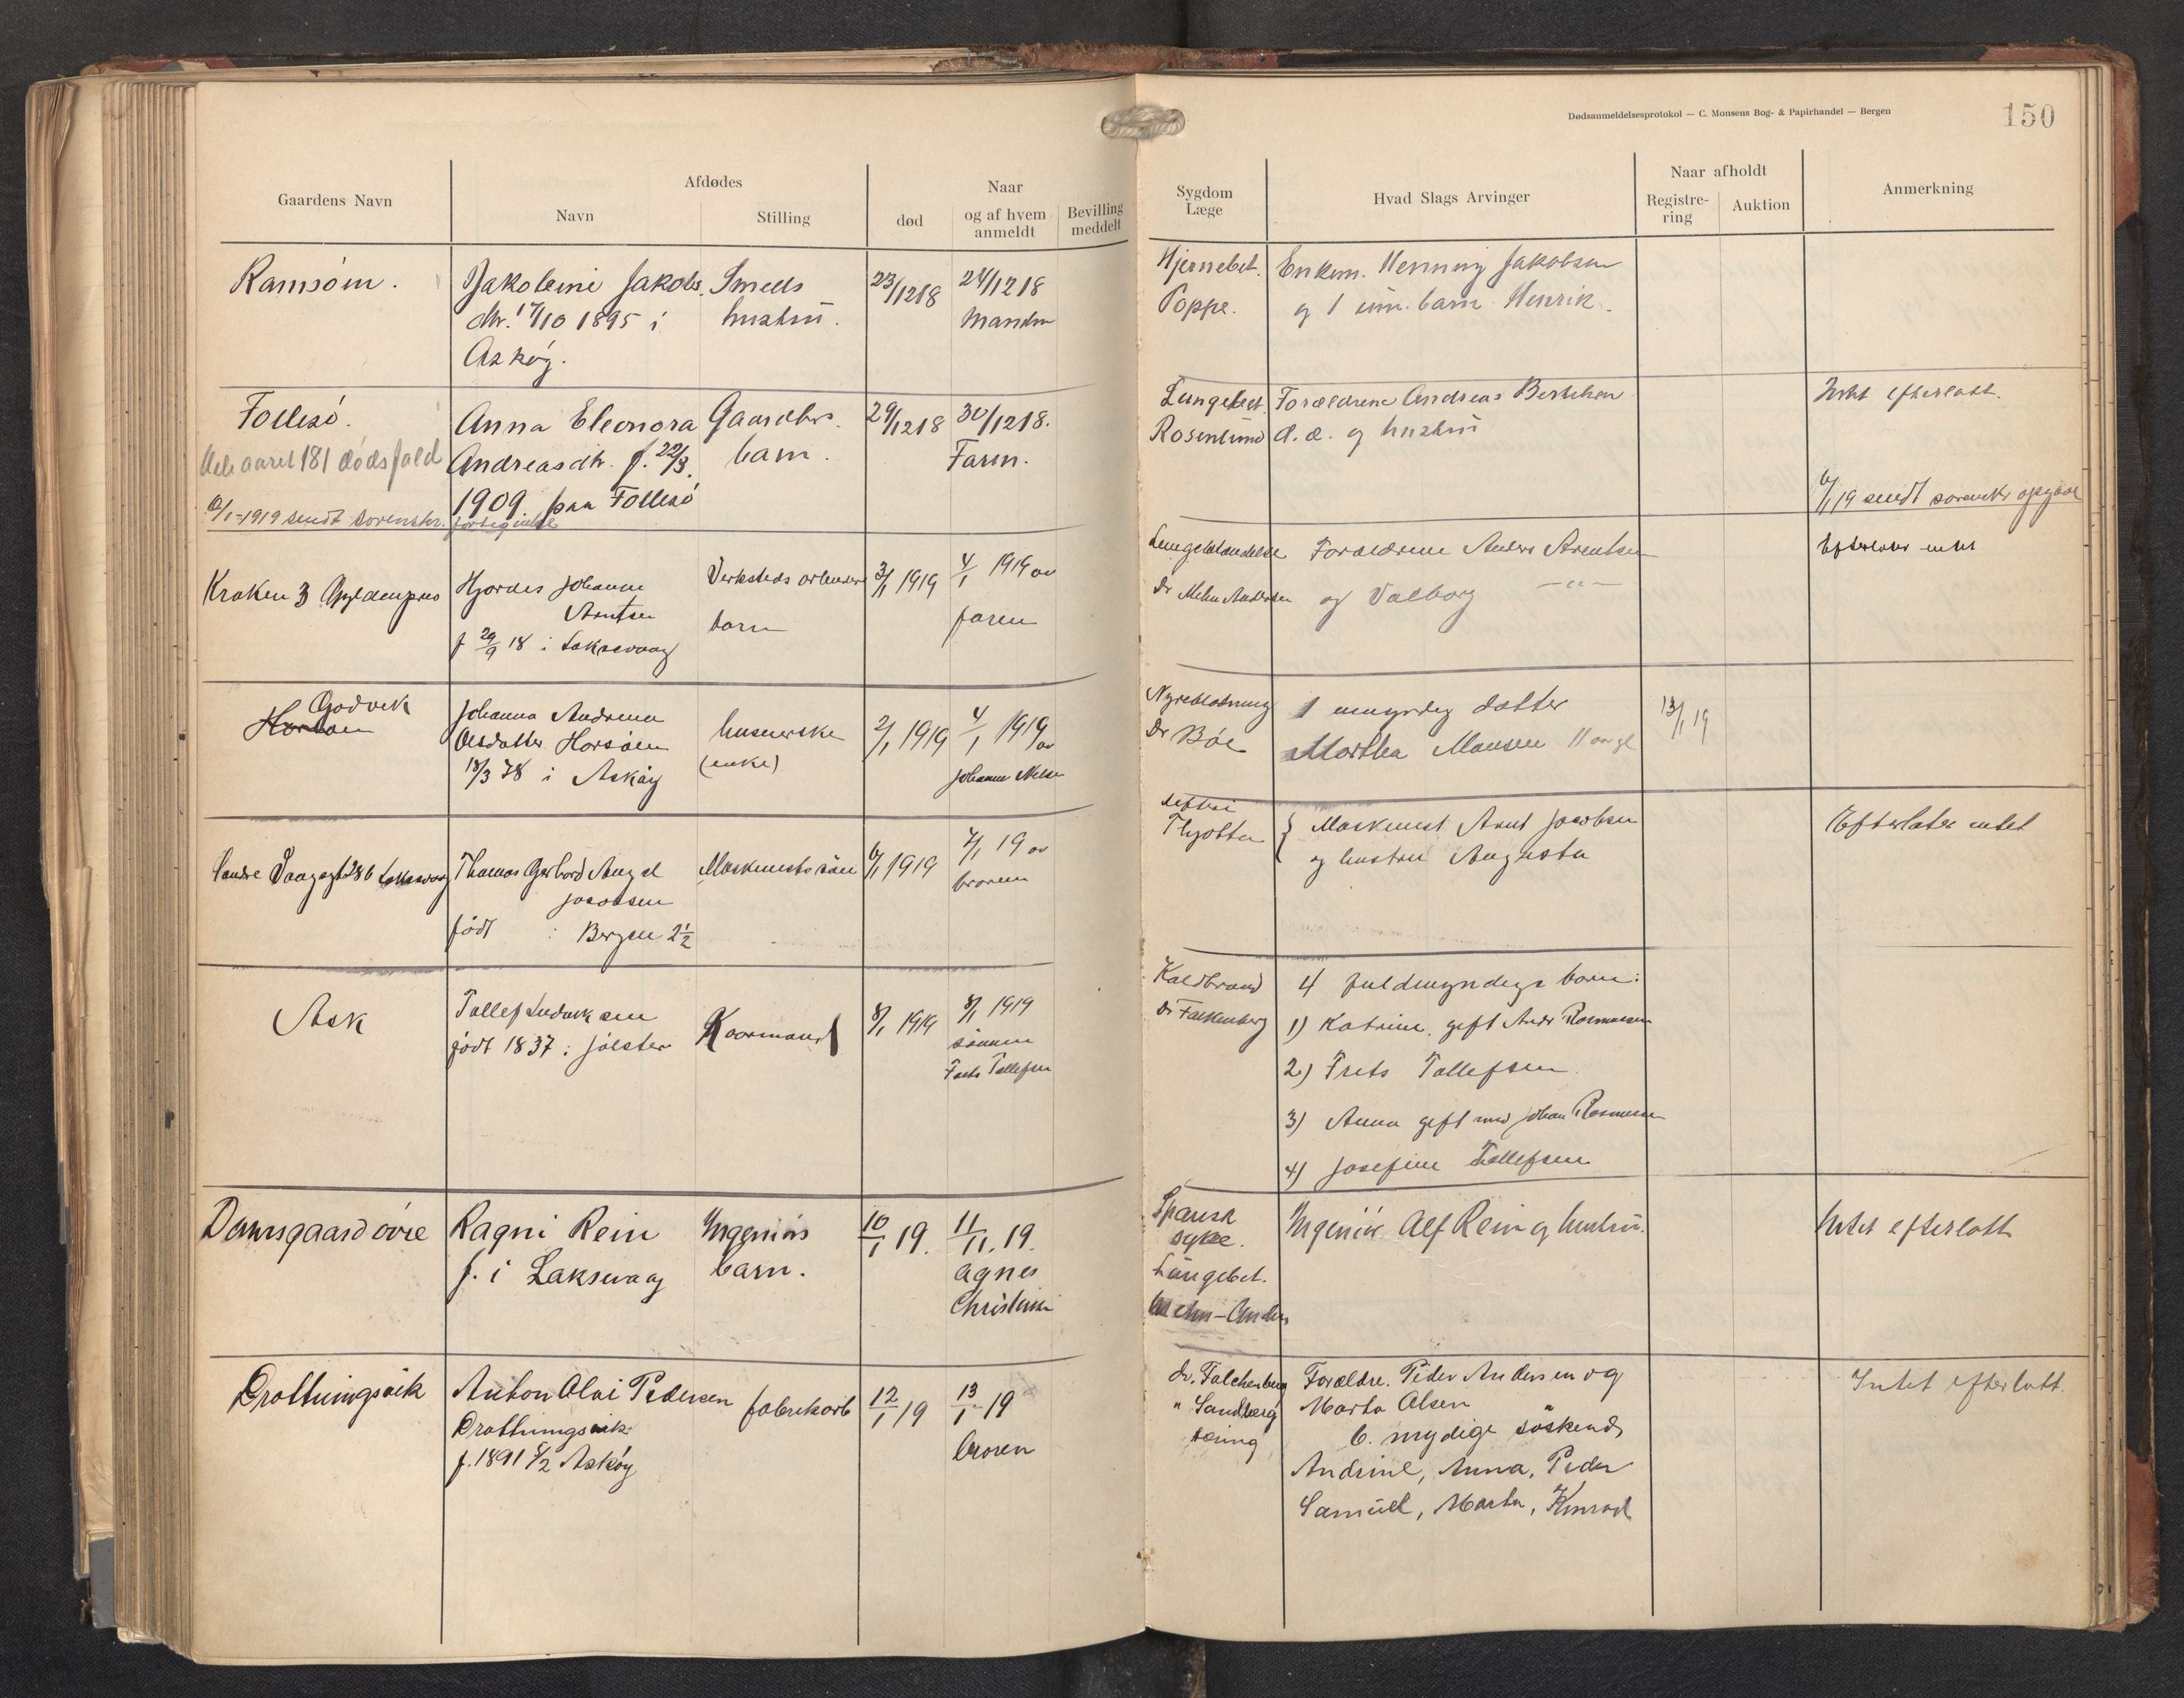 Dødsanmeldelsesprotokol — C. Monsens Bog- & Papirhandel — Bergen
150
Gaardens Navn
Afdødes
Navn
Stilling
død
Naar
og af hvem
anmeldt
Bevilling
meddelt
Sygdom
Læge
Hvad Slags Arvinger
Naar afholdt
Registre-
ring
Auktion
Anmerkning
Ramsöin.
Jakobine Jakobs.
dtr. 17/10 1895 i
Askög.
Smeds
hustru.
23/12 18
24/12 18
Manden
Hjernebet.
Poppe.
Enkem. Henning Jakobsen
og 1 um. barn Henrik.
Follesö.
Anna Eleonora
Andreasdtr. f. 22/3.
1909. paa Follesö
Gaardbrs.
barn.
29/12 18
30/12 18.
Faren.
Lungebet.
Rosenlund
Forældrene Andreas Bertelsen
d.æ. og hustru
Intet efterlatt.
Hele aaret 181 dödsfald
10/1-1919 sendt sorenskr. fortegnelse
6/1 19 sendt sorenskr opgave
Kroken 3 Gyldenpris
Hjordis Johanne
Arntsen
f 29/9 18 i Laksevaag
Verksteds arbeiders
barn
3/1 1919
4/1 1919 av
faren
Lungebetændelse
Dr Mehn Andersen
Forældrene Anders Arentsen
og Valborg —"—
Efterlater intet
Godvik
Johanna Andrina
Olsdatter Horsöen
18/3 78 i Asköy
husmerske
(enke)
2/1 1919
4/1 1919
av
Johanne Nilsen
Nyreblödning
Dr Böe
1 umyndig datter
Martha Monsen 11 aar gl
13/1 19
Söndre Vaagegt 286 Laksevaag
Thomas Gerhard Angel
Jacobsen
född : Bergen 2 1/2
Maskinists sön
6/1 1919
7/1 19 av
broren
Thjötta
{ Maskinist Arnt Jacobsen
og hustru Augusta
Efterlater intet
Ask
Tollef Ludviksen
födt 1837 i Jölster
Kaarmand
8/1 1919
8/1 1919
sönnen
Frets Tollefsen
Koldbrand
Dr Falkenberg
4 fuldmyndige barn:
1) Katrine, gift Andr Rasmussen
2) Frets Tollefsen
3) Anna gift med Johan Rasmussen
4) Josefine Tollefsen
Damsgaard övre
Ragni Rein
f. i Laksevaag
Ingeniörs
barn.
10/1 19.
11/11. 19.
Agnes
Christensen
Spansk
syke.
Lungebet.
Mehn-Anders
Ingeniör Alf Rein og hustru.
Intet efterlatt
Drottningsvik
Anton Olai Pedersen
Drottningsvik
f. 1891 5/2 Asköy
fabrikarb
12/1 19
13/1-19
broren
dr. Falchenberg
" Sandberg
tæring
Forældre. Peder Andersen og
Marta Olsen
6. mydige söskend
Andrine, Anna, Peder
Samuel, Marta, Konrad
Intet efterlatt.